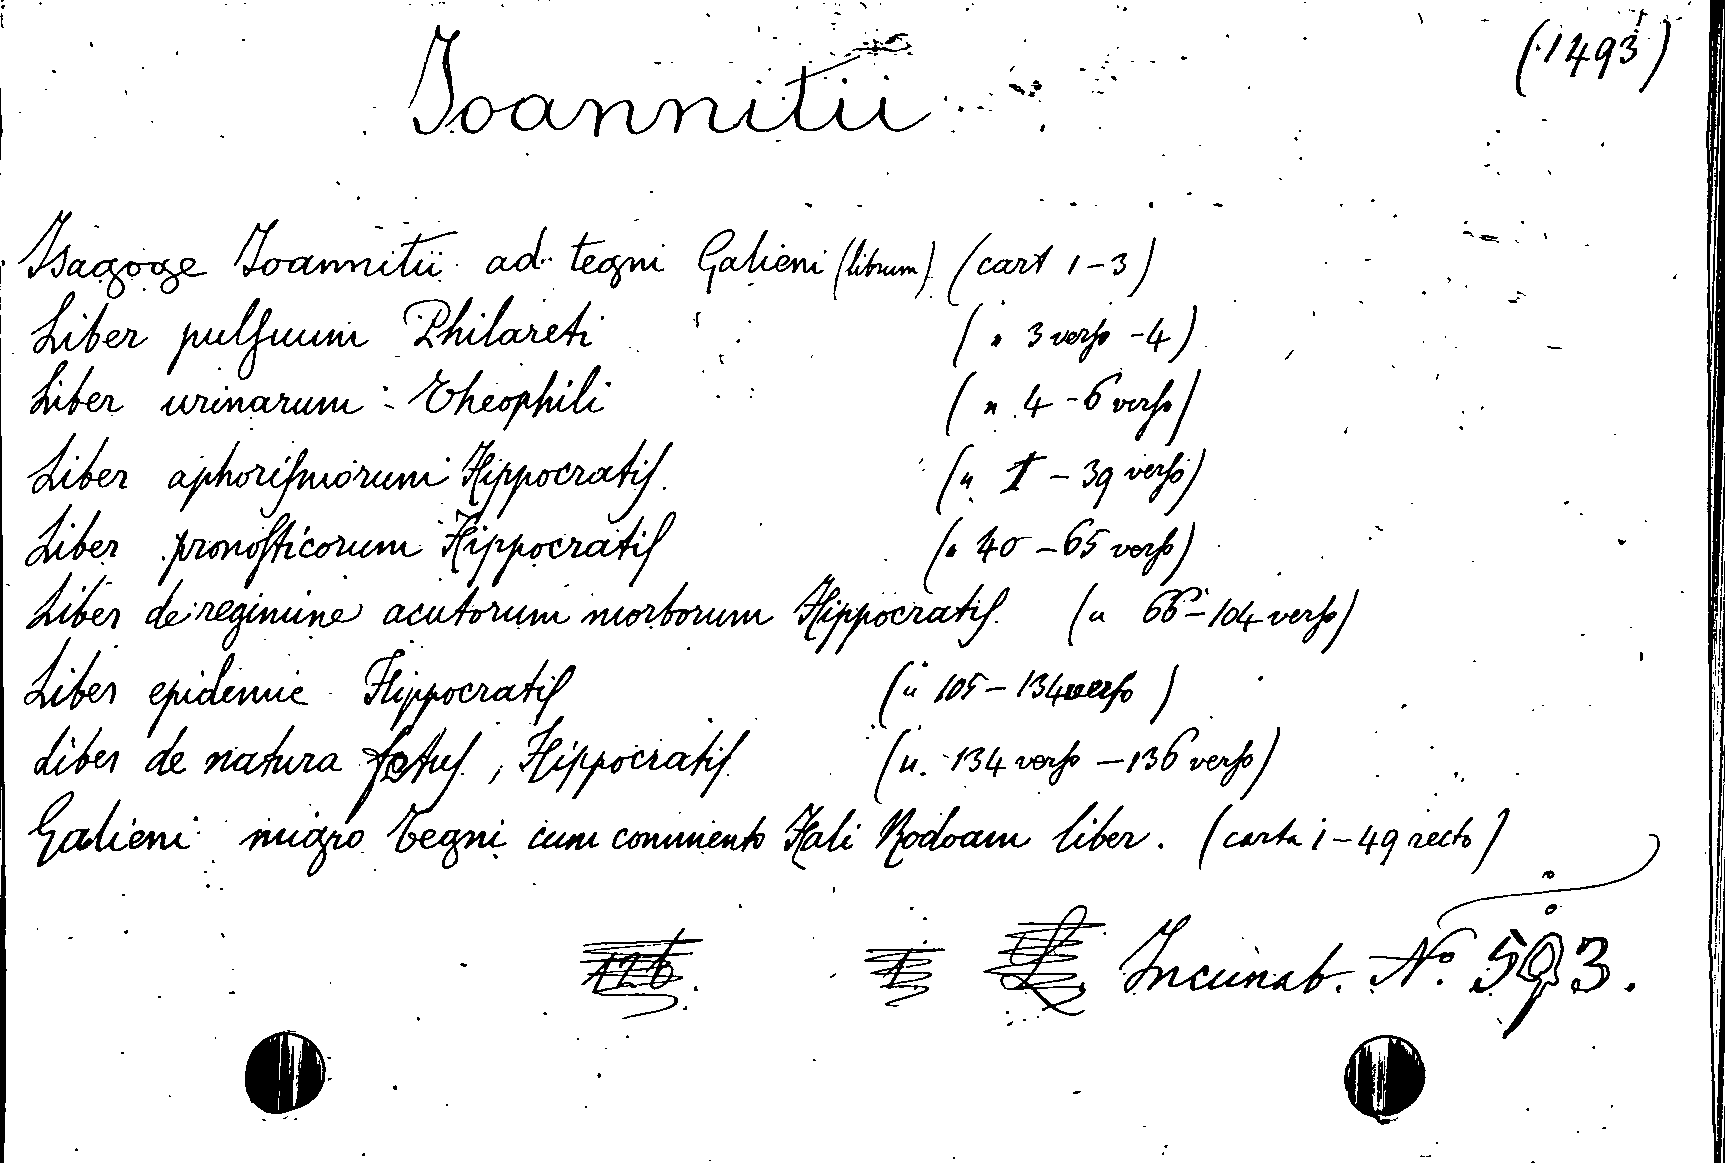 (1493)
Joannitii
Isagoge Joannitii ad tegni Galieni (librum) (cart 1-3)
Liber pulſuum Philareti (" 3 verſo -4)
Liber urinarum Theophili (" 4 -6 verſo)
Liber aphoriſmorum Hippocratiſ. (" 1 - 39 verſo)
Liber pronoſticorum Hippocratiſ (" 40 - 65 verſo)
Liber de regimine acutorum morborum Hippocratiſ. (" 66 - 104 verſo)
Liber epidemie Hippocratiſ (" 105 - 134 verſo)
Liber de natura fetuſ, Hippocratiſ. (" 134 verſo - 136 verſo)
Galieni migro Tegni cum commento Hali Rodoam liber. (carta 1 - 49 recto)
Incunab. No. 593.